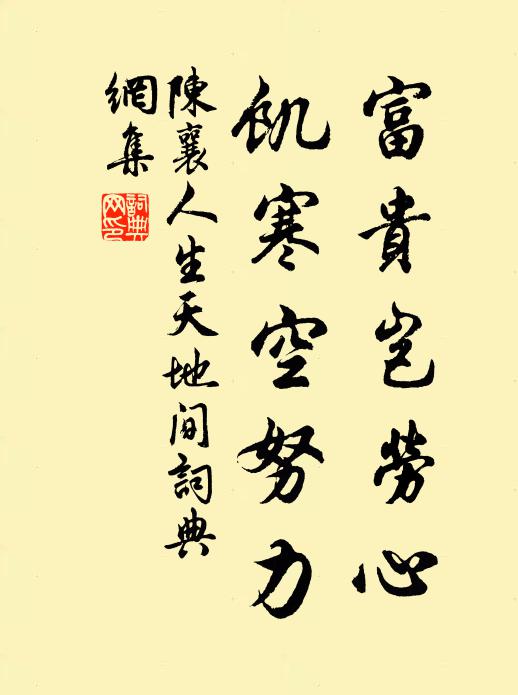 富貴岂勞心
飢寒空努力
陳襄人生天地间詞典
網集
詞典網印